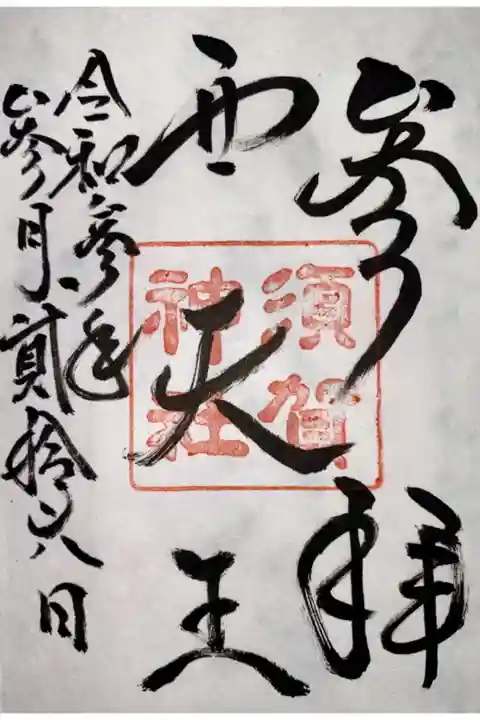 参拝
西天王
須賀
神社
令和参年
参月貳拾八日